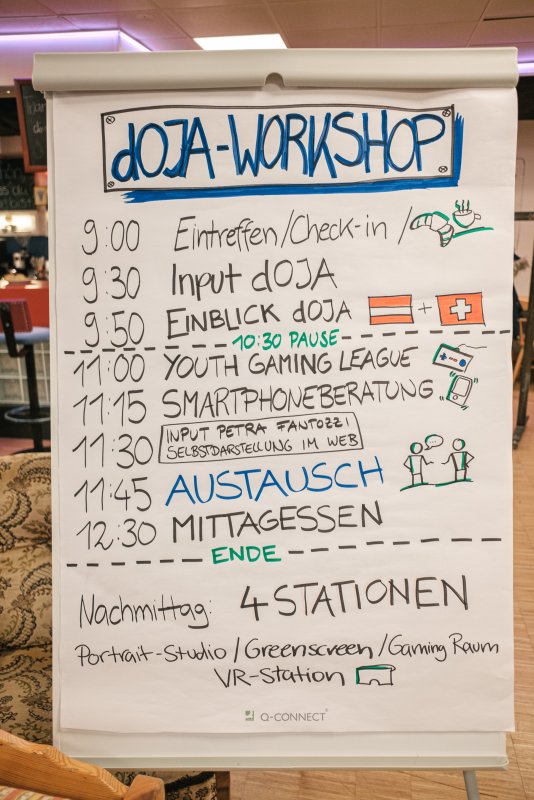 dOJA-WORKSHOP
9:00 Eintreffen/Check-in /
9:30 Input dOJA
9:50 EINBLICK dOJA +
10:30 PAUSE
11:00 YOUTH GAMING LEAGUE
11:15 SMARTPHONEBERATUNG
11:30 INPUT PETRA FANTOZZI
SELBSTDARSTELLUNG IM WEB
11:45 AUSTAUSCH
12:30 MITTAGESSEN
ENDE
Nachmittag: 4 STATIONEN
Portrait-Studio / Greenscreen / Gaming Raum
VR-Station
Q-CONNECT